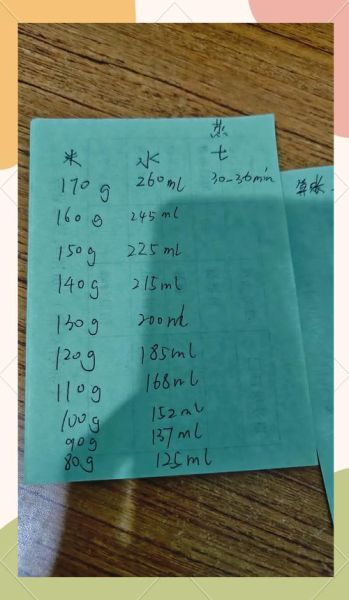 蒸
米 水 七
170g 260ml 30-36min
160g 245ml
150g 225ml
140g 215ml
130g 200ml
120g 185ml
110g 168ml
100g 152ml
90g 137ml
80g 125ml